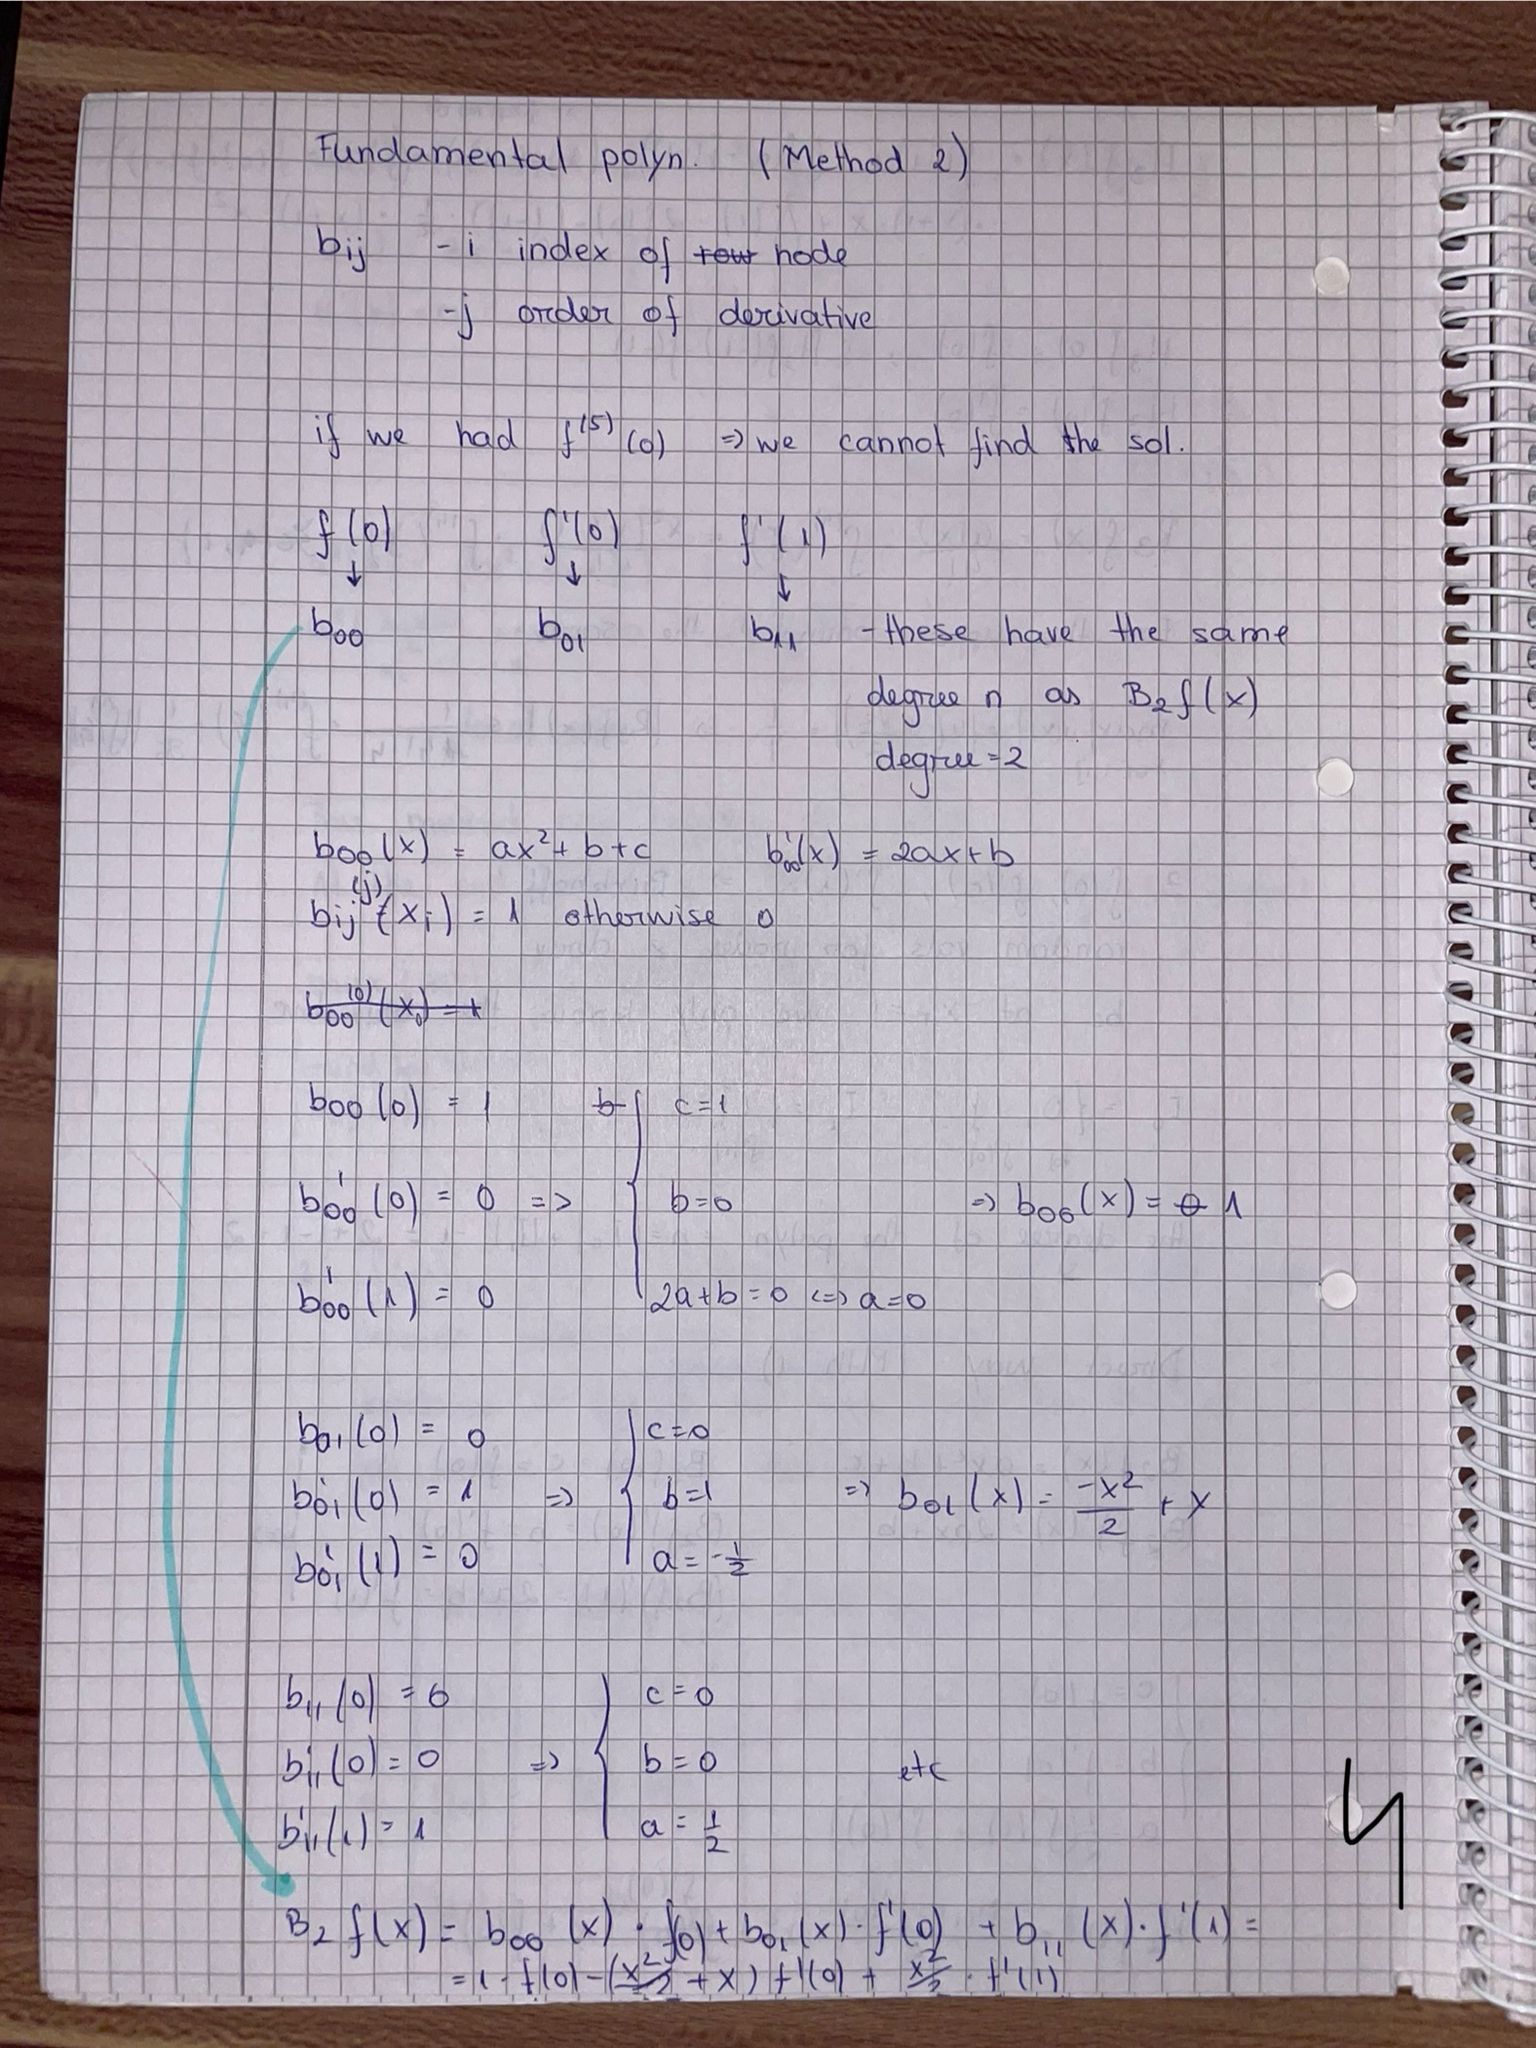 Fundamental polyn. (Method 2)
bij - i index of row node
- j order of derivative
if we had f⁽⁵⁾(0) => we cannot find the sol.
f(0) f'(0) f'(1)
↓ ↓ ↓
b00 b01 b11 - these have the same
degree n as B₂f(x)
degree = 2
b00(x) = ax² + b + c b'00(x) = 2ax + b
bij⁽ʲ⁾(xi) = 1 otherwise 0
b00⁽⁰⁾(x0) = 1
b00(0) = 1 b { c = 1
b'00(0) = 0 => b = 0 => b00(x) = 0 1
b'00(1) = 0 2a + b = 0 <=> a = 0
b01(0) = 0 c = 0
b'01(0) = 1 => { b = 1 => b01(x) = -x²/2 + x
b'01(1) = 0 a = -1/2
b11(0) = 0 c = 0
b'11(0) = 0 => { b = 0 etc
b'11(1) = 1 a = 1/2
B₂f(x) = b00(x) · f(0) + b01(x) · f'(0) + b11(x) · f'(1) =
= 1 · f(0) - (x²/2 + x) f'(0) + x²/2 · f'(1)
4